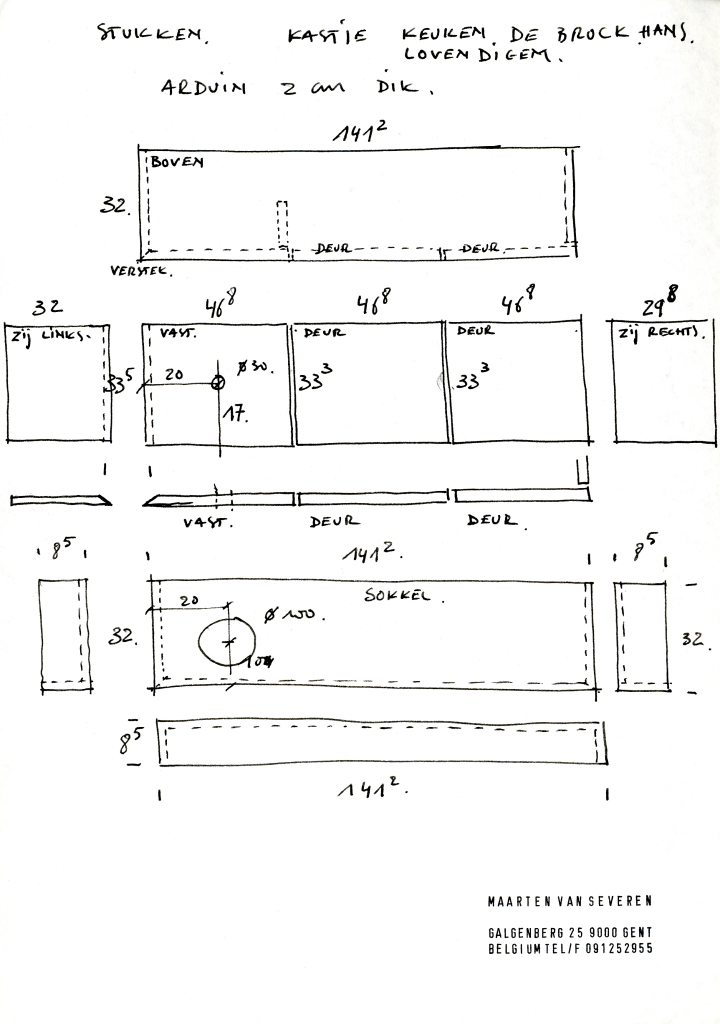 STUKKEN. KASTJE KEUKEN. DE BROCK HANS.
LOVENDIGEM.
ARDUIN 2 cm DIK.
141²
BOVEN
32.
DEUR DEUR
VERSTEK.
32 46⁸ 46⁸ 46⁸ 29⁸
ZIJ LINKS. VAST. DEUR DEUR ZIJ RECHTS.
33⁵ 20 Ø30. 33³ 33³
17.
VAST. DEUR DEUR.
8⁵ 141². 8⁵
20 SOKKEL.
Ø 100.
32. 32.
8⁵
141².
MAARTEN VAN SEVEREN
GALGENBERG 25 9000 GENT
BELGIUM TEL/F 091252955